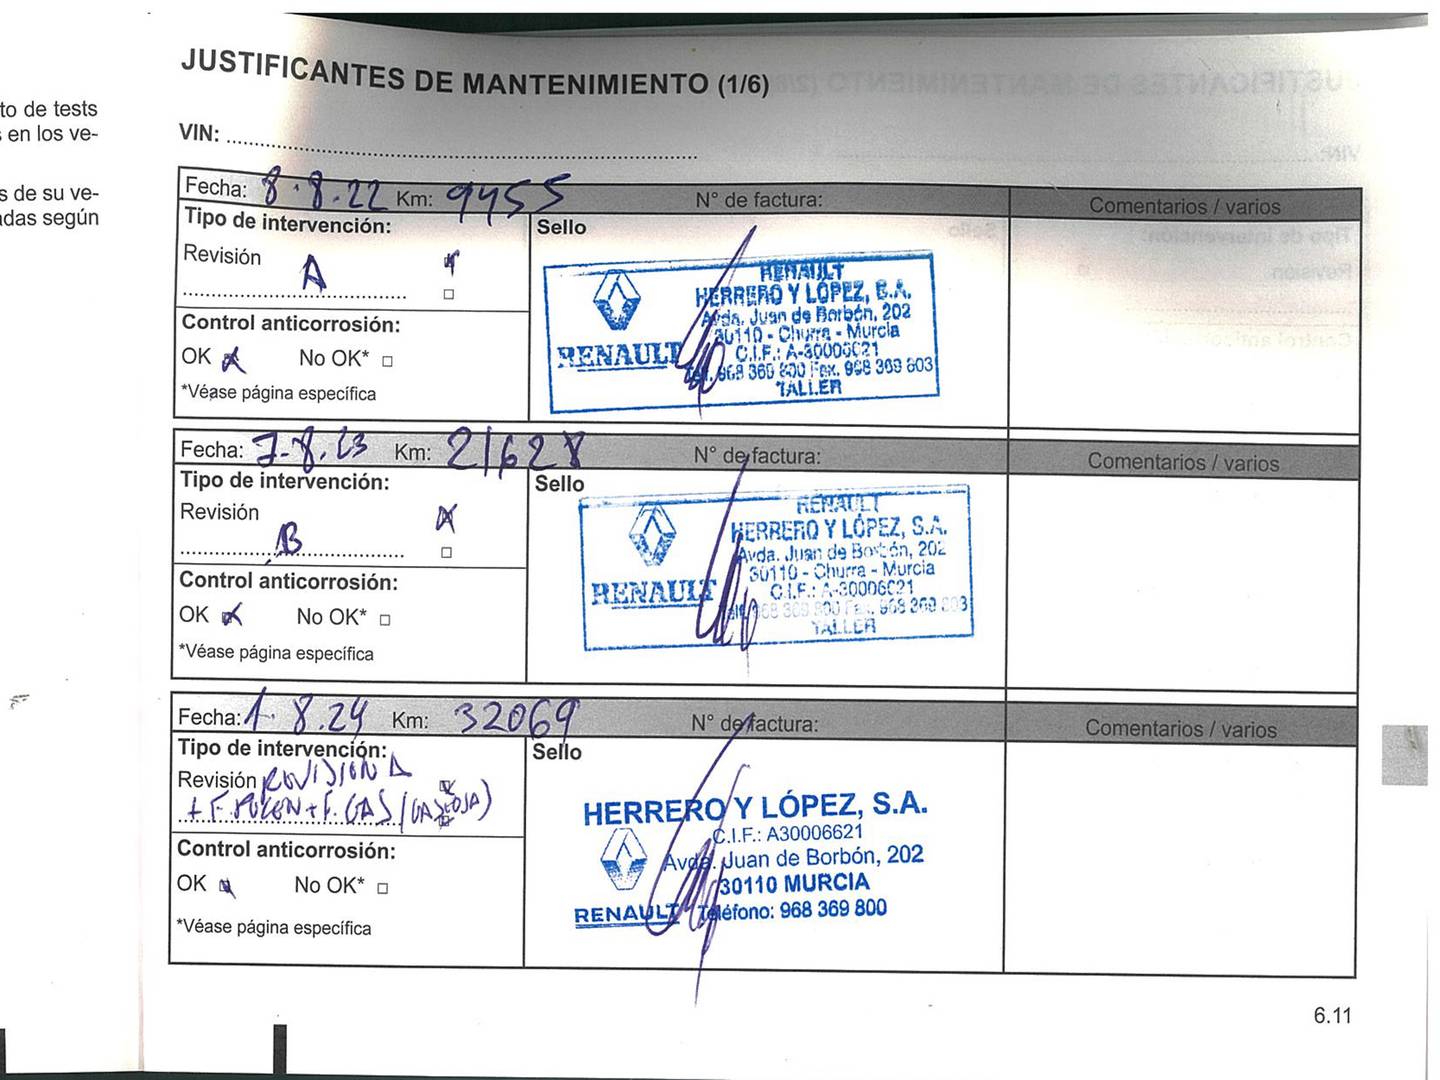 to de tests
s en los ve-
s de su ve-
adas según
JUSTIFICANTES DE MANTENIMIENTO (1/6)
VIN:
Fecha: 8.8.22 Km: 9455 N° de factura: Comentarios / varios
Tipo de intervención: Sello
Revisión
A
Control anticorrosión:
OK No OK*
*Véase página específica
RENAULT
RENAULT
HERRERO Y LÓPEZ, S.A.
Avda. Juan de Borbón, 202
30110 - Churra - Murcia
C.I.F.: A-30006621
Telf. 968 369 800 Fax. 968 369 803
TALLER
Fecha: 7.8.23 Km: 21628 N° de factura: Comentarios / varios
Tipo de intervención: Sello
Revisión
B
Control anticorrosión:
OK No OK*
*Véase página específica
RENAULT
RENAULT
HERRERO Y LÓPEZ, S.A.
Avda. Juan de Borbón, 202
30110 - Churra - Murcia
C.I.F.: A-30006621
Telf. 968 369 800 Fax. 968 369 803
TALLER
Fecha: 1.8.24 Km: 32069 N° de factura: Comentarios / varios
Tipo de intervención: Sello
Revisión REVISION A
+ F. POLEN + F. GAS
Control anticorrosión:
OK No OK*
*Véase página específica
HERRERO Y LÓPEZ, S.A.
C.I.F.: A30006621
Avda. Juan de Borbón, 202
30110 MURCIA
RENAULT Teléfono: 968 369 800
6.11